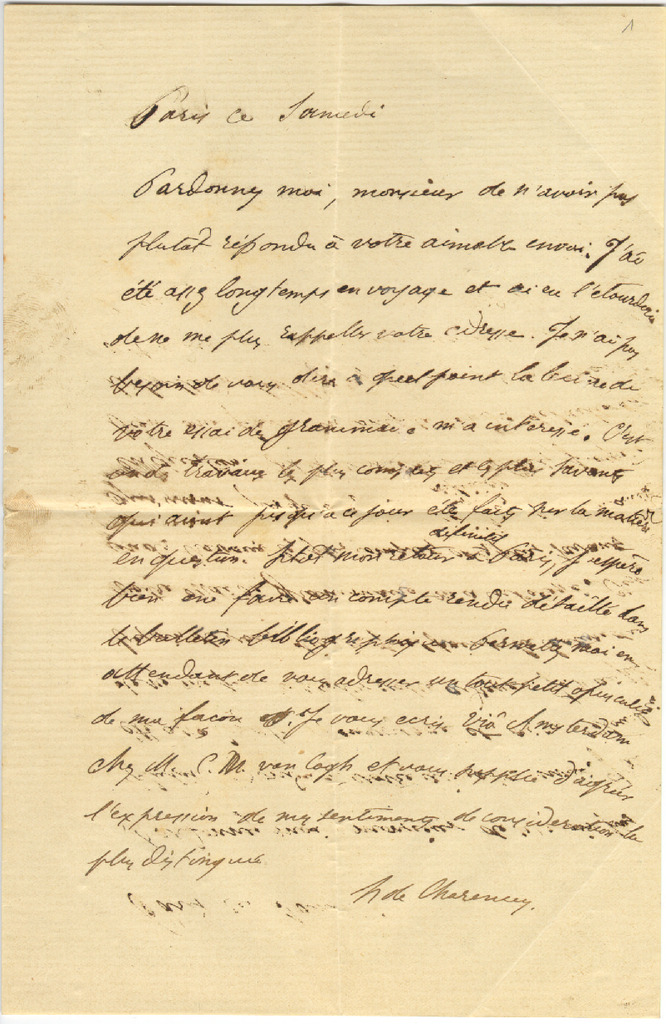 1
Paris ce Samedi
Pardonnez moi, monsieur de n'avoir pas
plutot répondu à votre aimable envoi. J'ai
été assez longtemps en voyage et ai eu l'étourderie
de ne me plus rappeller votre adresse. Je n'ai pas
besoin de vous dire à quel point la lecture de
votre essai de grammaire m'a interessé. C'est
un des travaux les plus complets et les plus savants
qui aient jusqu'à ce jour été faits sur la matière
en question. Sitot mon retour définitif à Paris, J'espère
bien en faire un compte rendu détaillé dans
le bulletin bibliographique. Permettez moi en
attendant de vous adresser un tout petit opuscule
de ma façon. Je vous ecris viâ Amsterdam
chez M. C. M. van Gogh, et vous supplie d'agréer
l'expression de mes sentiments de consideration la
plus distinguée
H de Charencey.